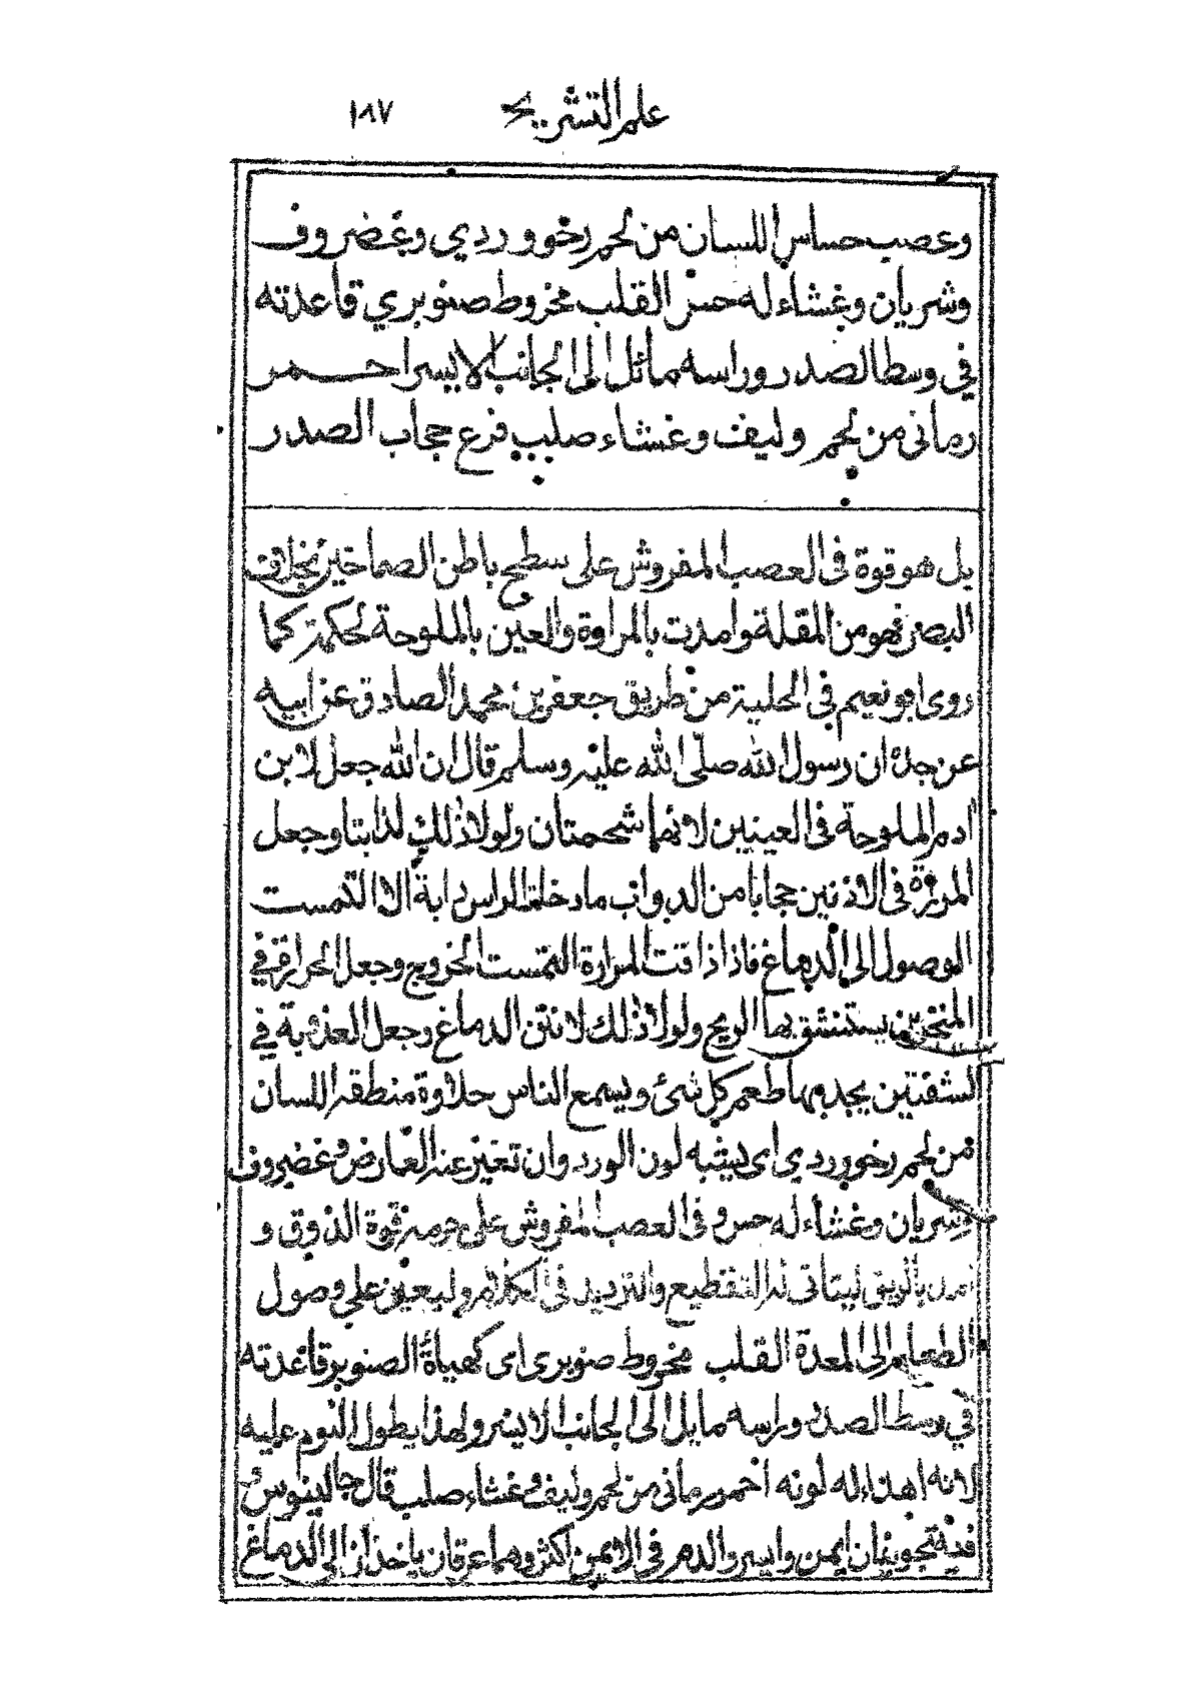 علم التشريح ١٨٧
وعصب حساس اللسان من لحم رخو وردي وغضروف
وشريان وغشاء له حس القلب مخروط صنوبري قاعدته
في وسط الصدر وراسه مائل الى الجانب الايسر احمر
رماني من لحم وليف وغشاء صلب فرع حجاب الصدر
بل هو قوة فى العصب المفروش على سطح باطن الصماخين بخلاف
البصر فهو من المقلة وامدت بالمراوة والعين بالملوحة لحكمة كما
روى ابو نعيم فى الحلية من طريق جعفر بن محمد الصادق عن ابيه
عن جده ان رسول الله صلى الله عليه وسلم قال ان الله جعل لابن
ادم الملوحة فى العينين لانهما شحمتان ولولا ذلك لذابتا وجعل
المرة فى الاذنين حجابا من الدواب ما دخلت الراس دابة الا التمست
الوصول الى الدماغ فاذا ذاقت المرارة التمست الخروج وجعل الحرارة في
المنخرين يستنشق بهما الريح ولولا ذلك لانتن الدماغ وجعل العذوبة في
الشفتين يجد بهما طعم كل شئ ويسمع الناس حلاوة منطقه اللسان
من لحم رخو وردي اى يشبه لون الورد وان تغير عند العارض وغضروف
وشريان وغشاء له حس و فى العصب المفروش على جرمه قوة الذوق و
امد بالريق ليتاتى له التقطيع والترديد فى الكلام وليعين على وصول
الطعام الى المعدة القلب مخروط صنوبرى اى كهيأة الصنوبر قاعدته
في وسط الصدر وراسه مايل الى الجانب الايسر ولهذا يطول النوم عليه
لانه اهدا له لونه احمر رمانى من لحم وليف وغشاء صلب قال جالينوس و
فيه تجويفان ايمن وايسر والدم فى الايمن اكثر وهما عرقان ياخذان الى الدماغ